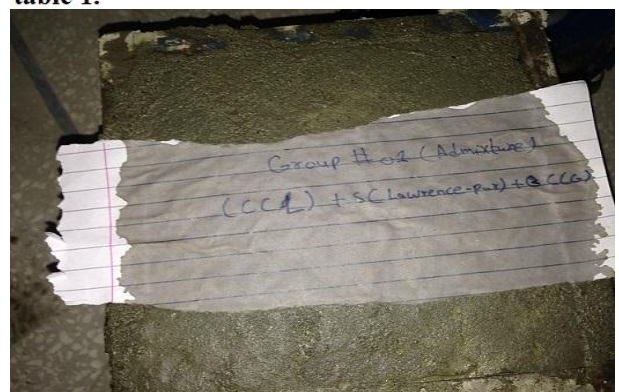 table 1.
Group # 02 (Admixture)
(CC1) + S(Lawrence-pur) + B(CG)